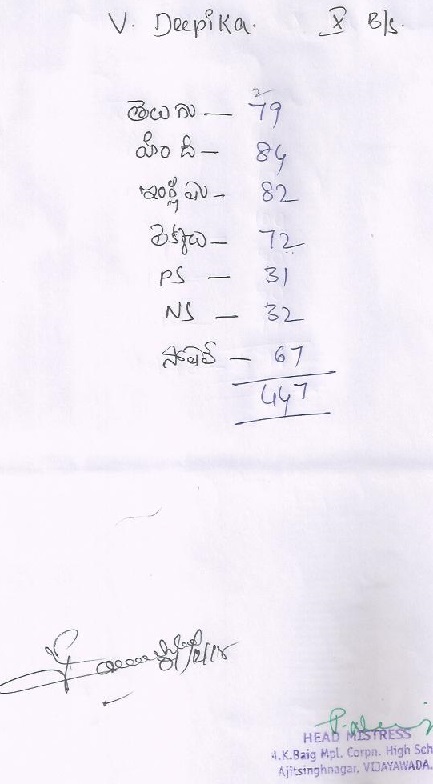 V. Deepika. X B/s.
2
తెలుగు — 79
హిందీ — 84
ఇంగ్లీషు — 82
లెక్కలు — 72
PS — 31
NS — 32
సోషల్ — 67
447
HEAD MISTRESS
A.K.Baig Mpl. Corpn. High Sch
Ajitsinghnagar, VIJAYAWADA.